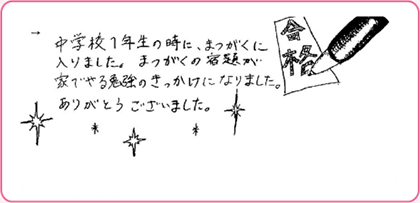 中学校1年生の時に、まつがくに
入りました。まつがくの宿題が
家でやる勉強のきっかけになりました。
ありがとうございました。
合格